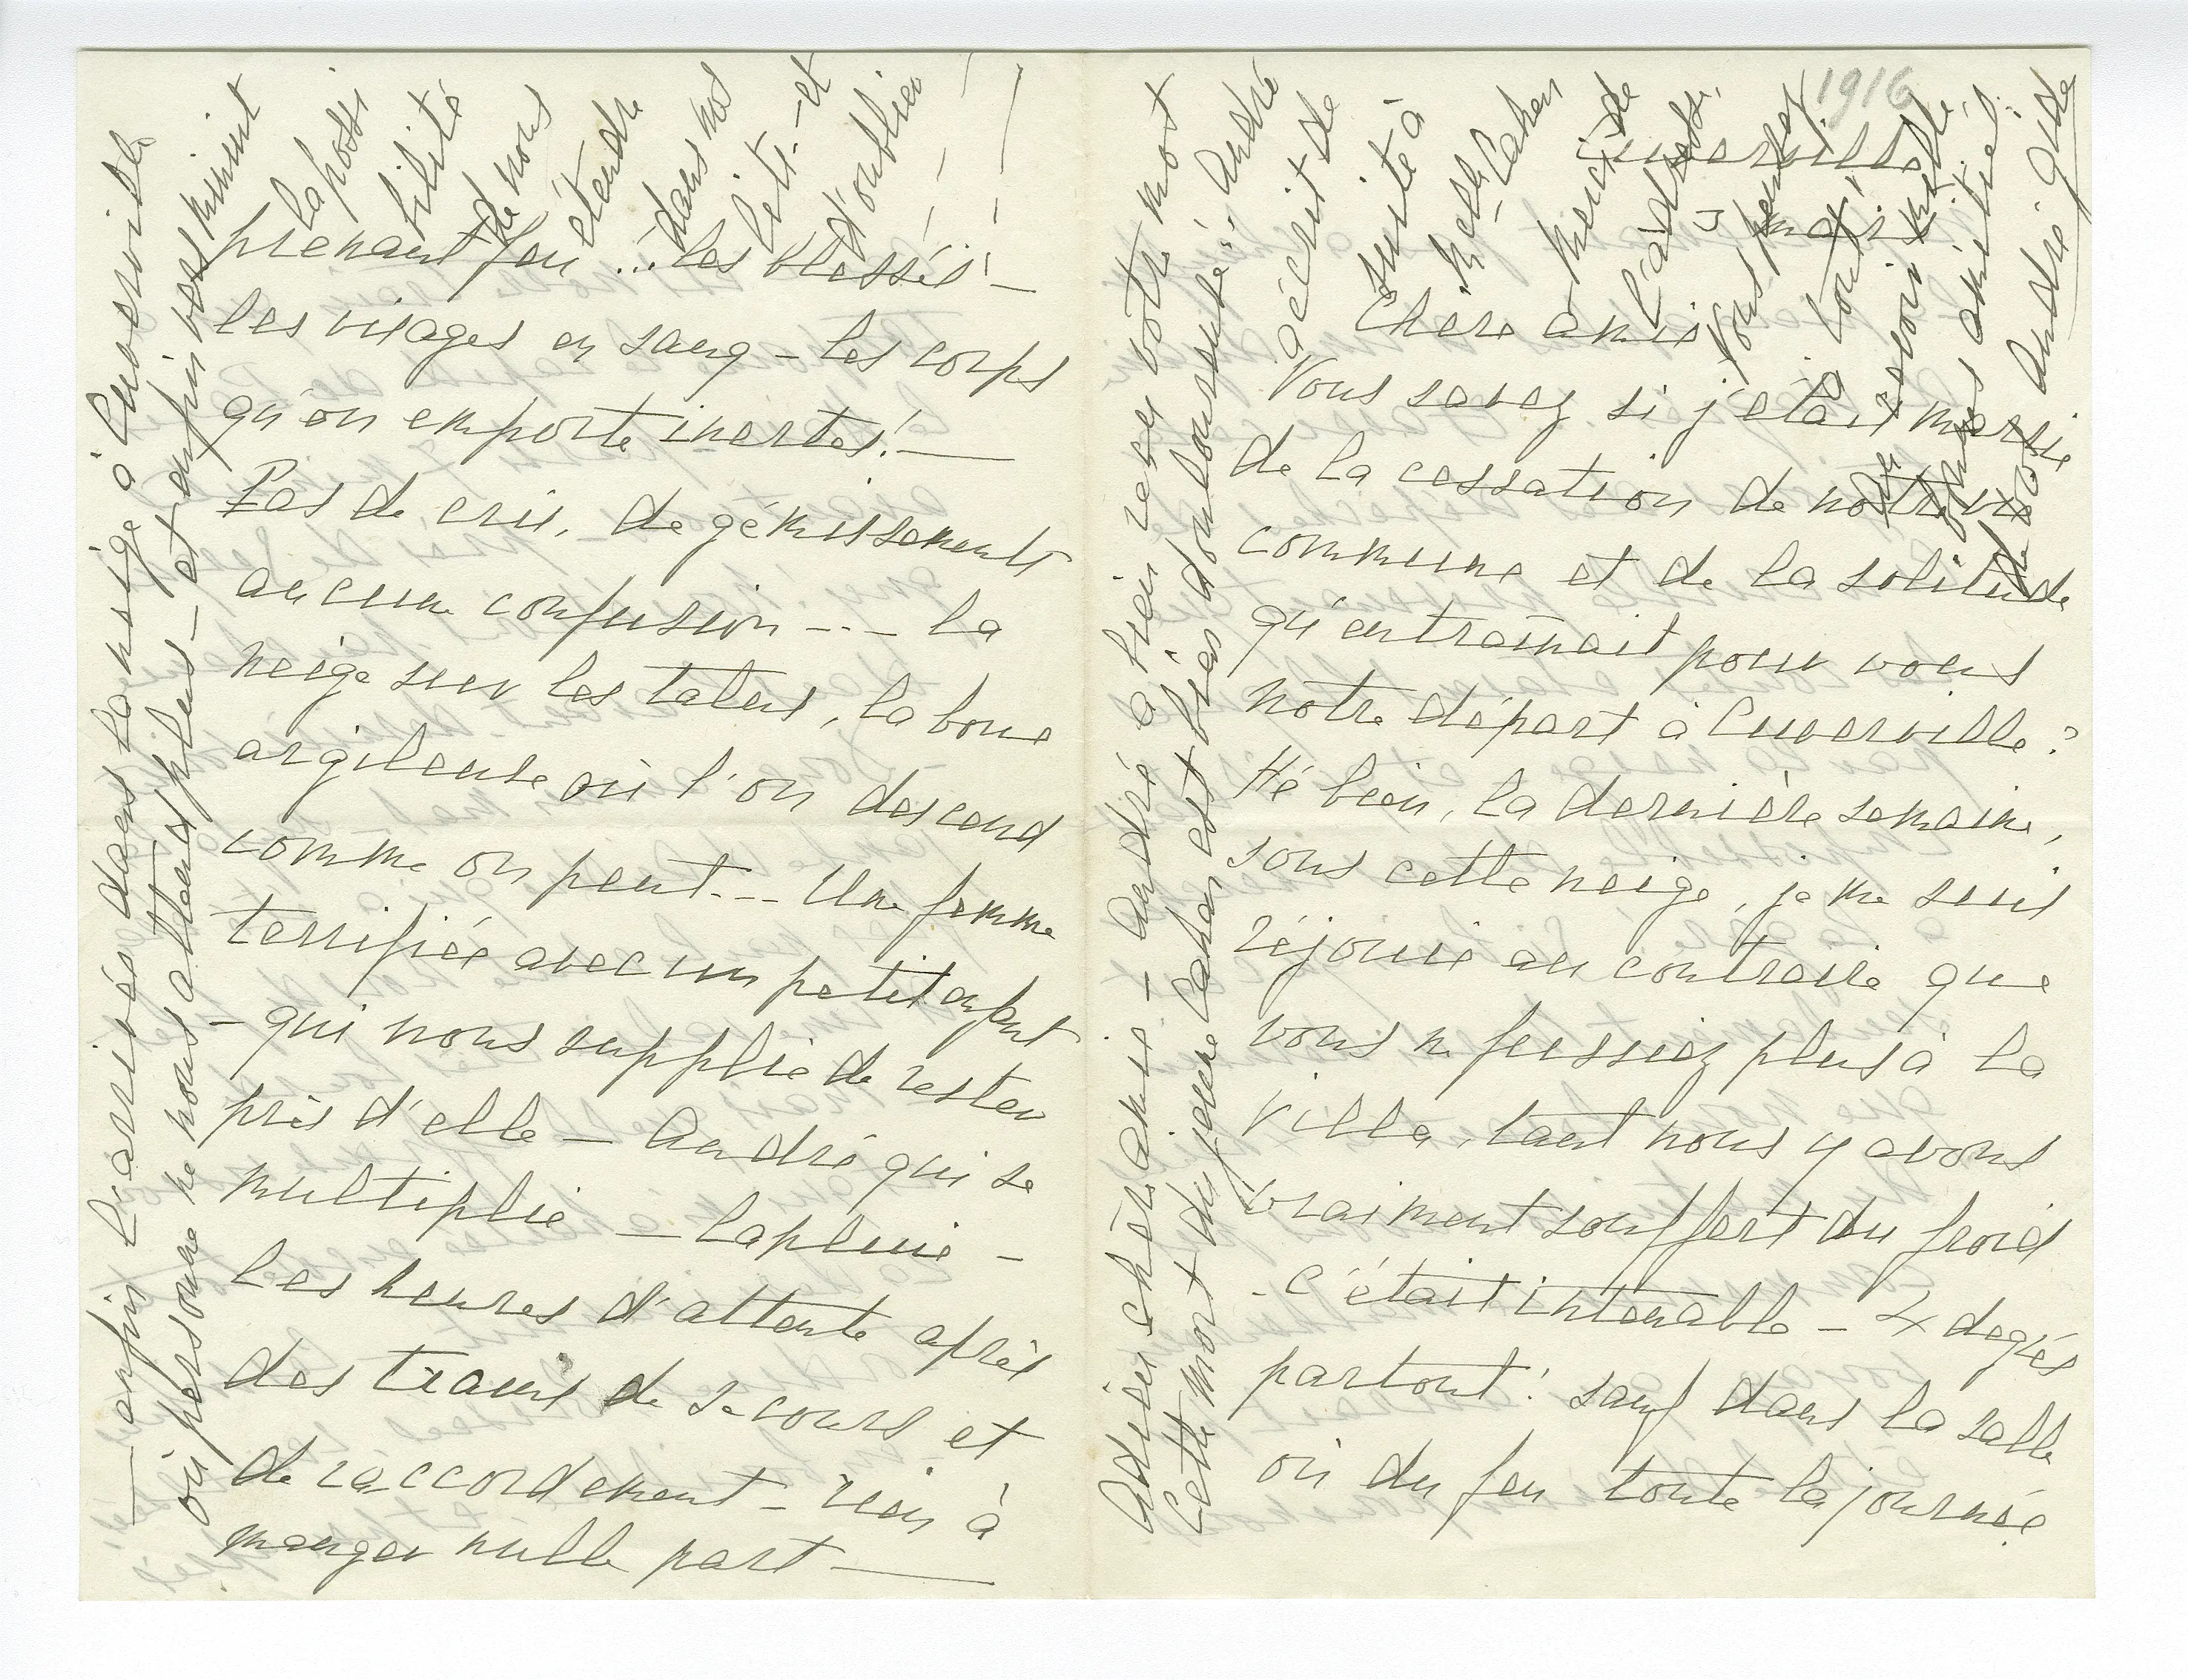 1916
Cuverville
mardi
Chère amie
Vous savez si j'étais marrie
de la cessation de notre vie
commune et de la solitude
qu'entraînait pour vous
notre départ à Cuverville?
Hé bien, la dernière semaine,
sous cette neige, je me suis
réjouie au contraire que
vous ne fussiez plus à la
Villa, tant nous y avons
vraiment souffert du froid
- c'était intenable - 4 degrés
partout! sauf dans la salle
où du feu toute la journée
prenant feu... les blessés! -
les visages en sang - les corps
qu'on emporte inertes! -
Pas de cris, de gémissements
aucune confusion --- la
neige sur les talus, la boue
argileuse où l'on descend
comme on peut--- Une femme
terrifiée avec un petit enfant
- qui nous supplie de rester
près d'elle - André qui se
multiplie - la pluie -
les heures d'attente après
des trains de secours et
de raccordement - rien à
manger nulle part -
- enfin l'arrivée dans la neige à Cuverville
où personne ne nous attend plus - et enfin vers minuit
la possi
bilité
de nous
étendre
dans nos
lits - et
d'oublier
Adieu chère amie - André a bien reçu votre mot
Cette mort du jeune Cahen est bien douloureuse... André
a écrit de
suite à
Melle Cahen
Merci de
l'adresse,
Vous pensez
à tout!
Au revoir
amitiés
André Gide